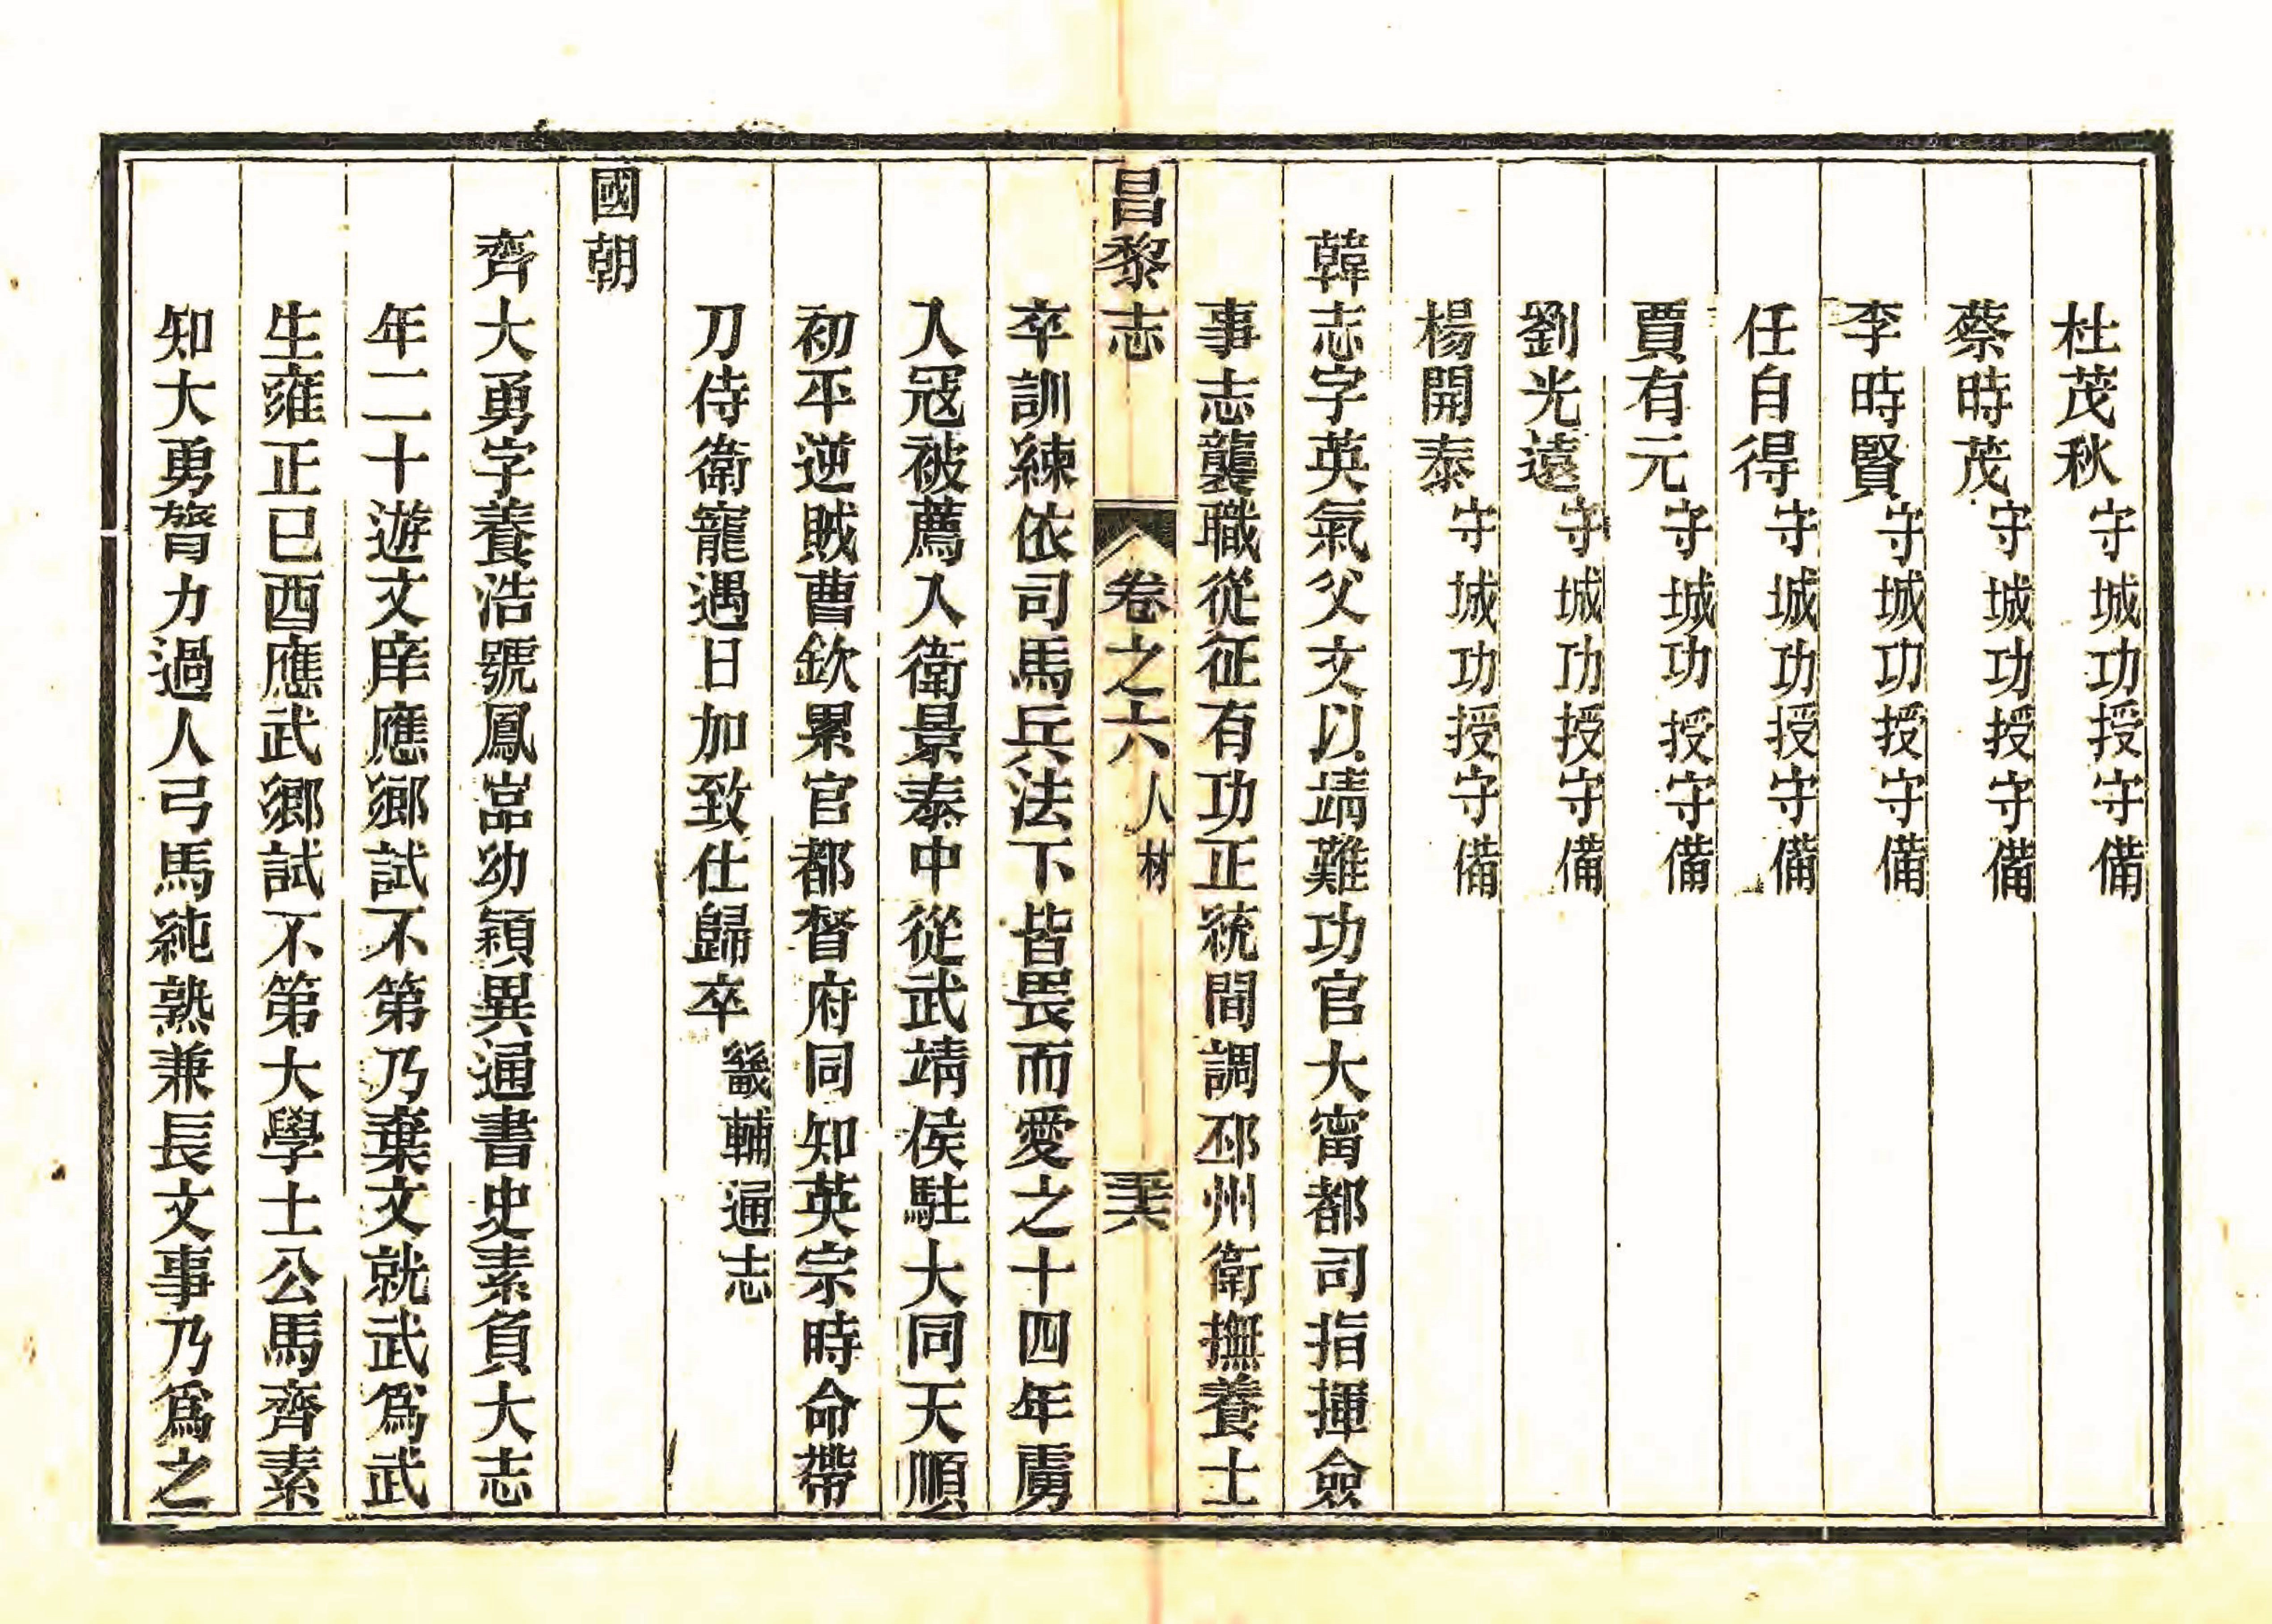 杜茂秋守城功授守備
蔡時茂守城功授守備
李時賢守城功授守備
任自得守城功授守備
賈有元守城功授守備
劉光遠守城功授守備
楊開泰守城功授守備
韓志字英氣父文以靖難功官大甯都司指揮僉
事志襲職從征有功正統間調邳州衛撫養士
昌黎志 卷之六人材 五六
卒訓練依司馬兵法下皆畏而愛之十四年虜
入寇被薦入衛景泰中從武靖侯駐大同天順
初平逆賊曹欽累官都督府同知英宗時命帶
刀侍衛寵遇日加致仕歸卒畿輔通志
國朝
齊大勇字養浩號鳳嵓幼穎異通書史素負大志
年二十遊文庠應鄉試不第乃棄文就武爲武
生雍正已酉應武鄉試不第大學士公馬齊素
知大勇膂力過人弓馬純熟兼長文事乃爲之